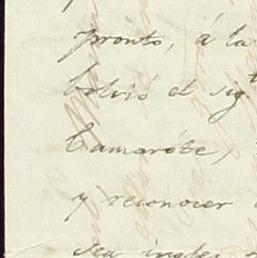 pronto, á la
bolvió el sigte
Camaróte,
y reconocer
sea ingles